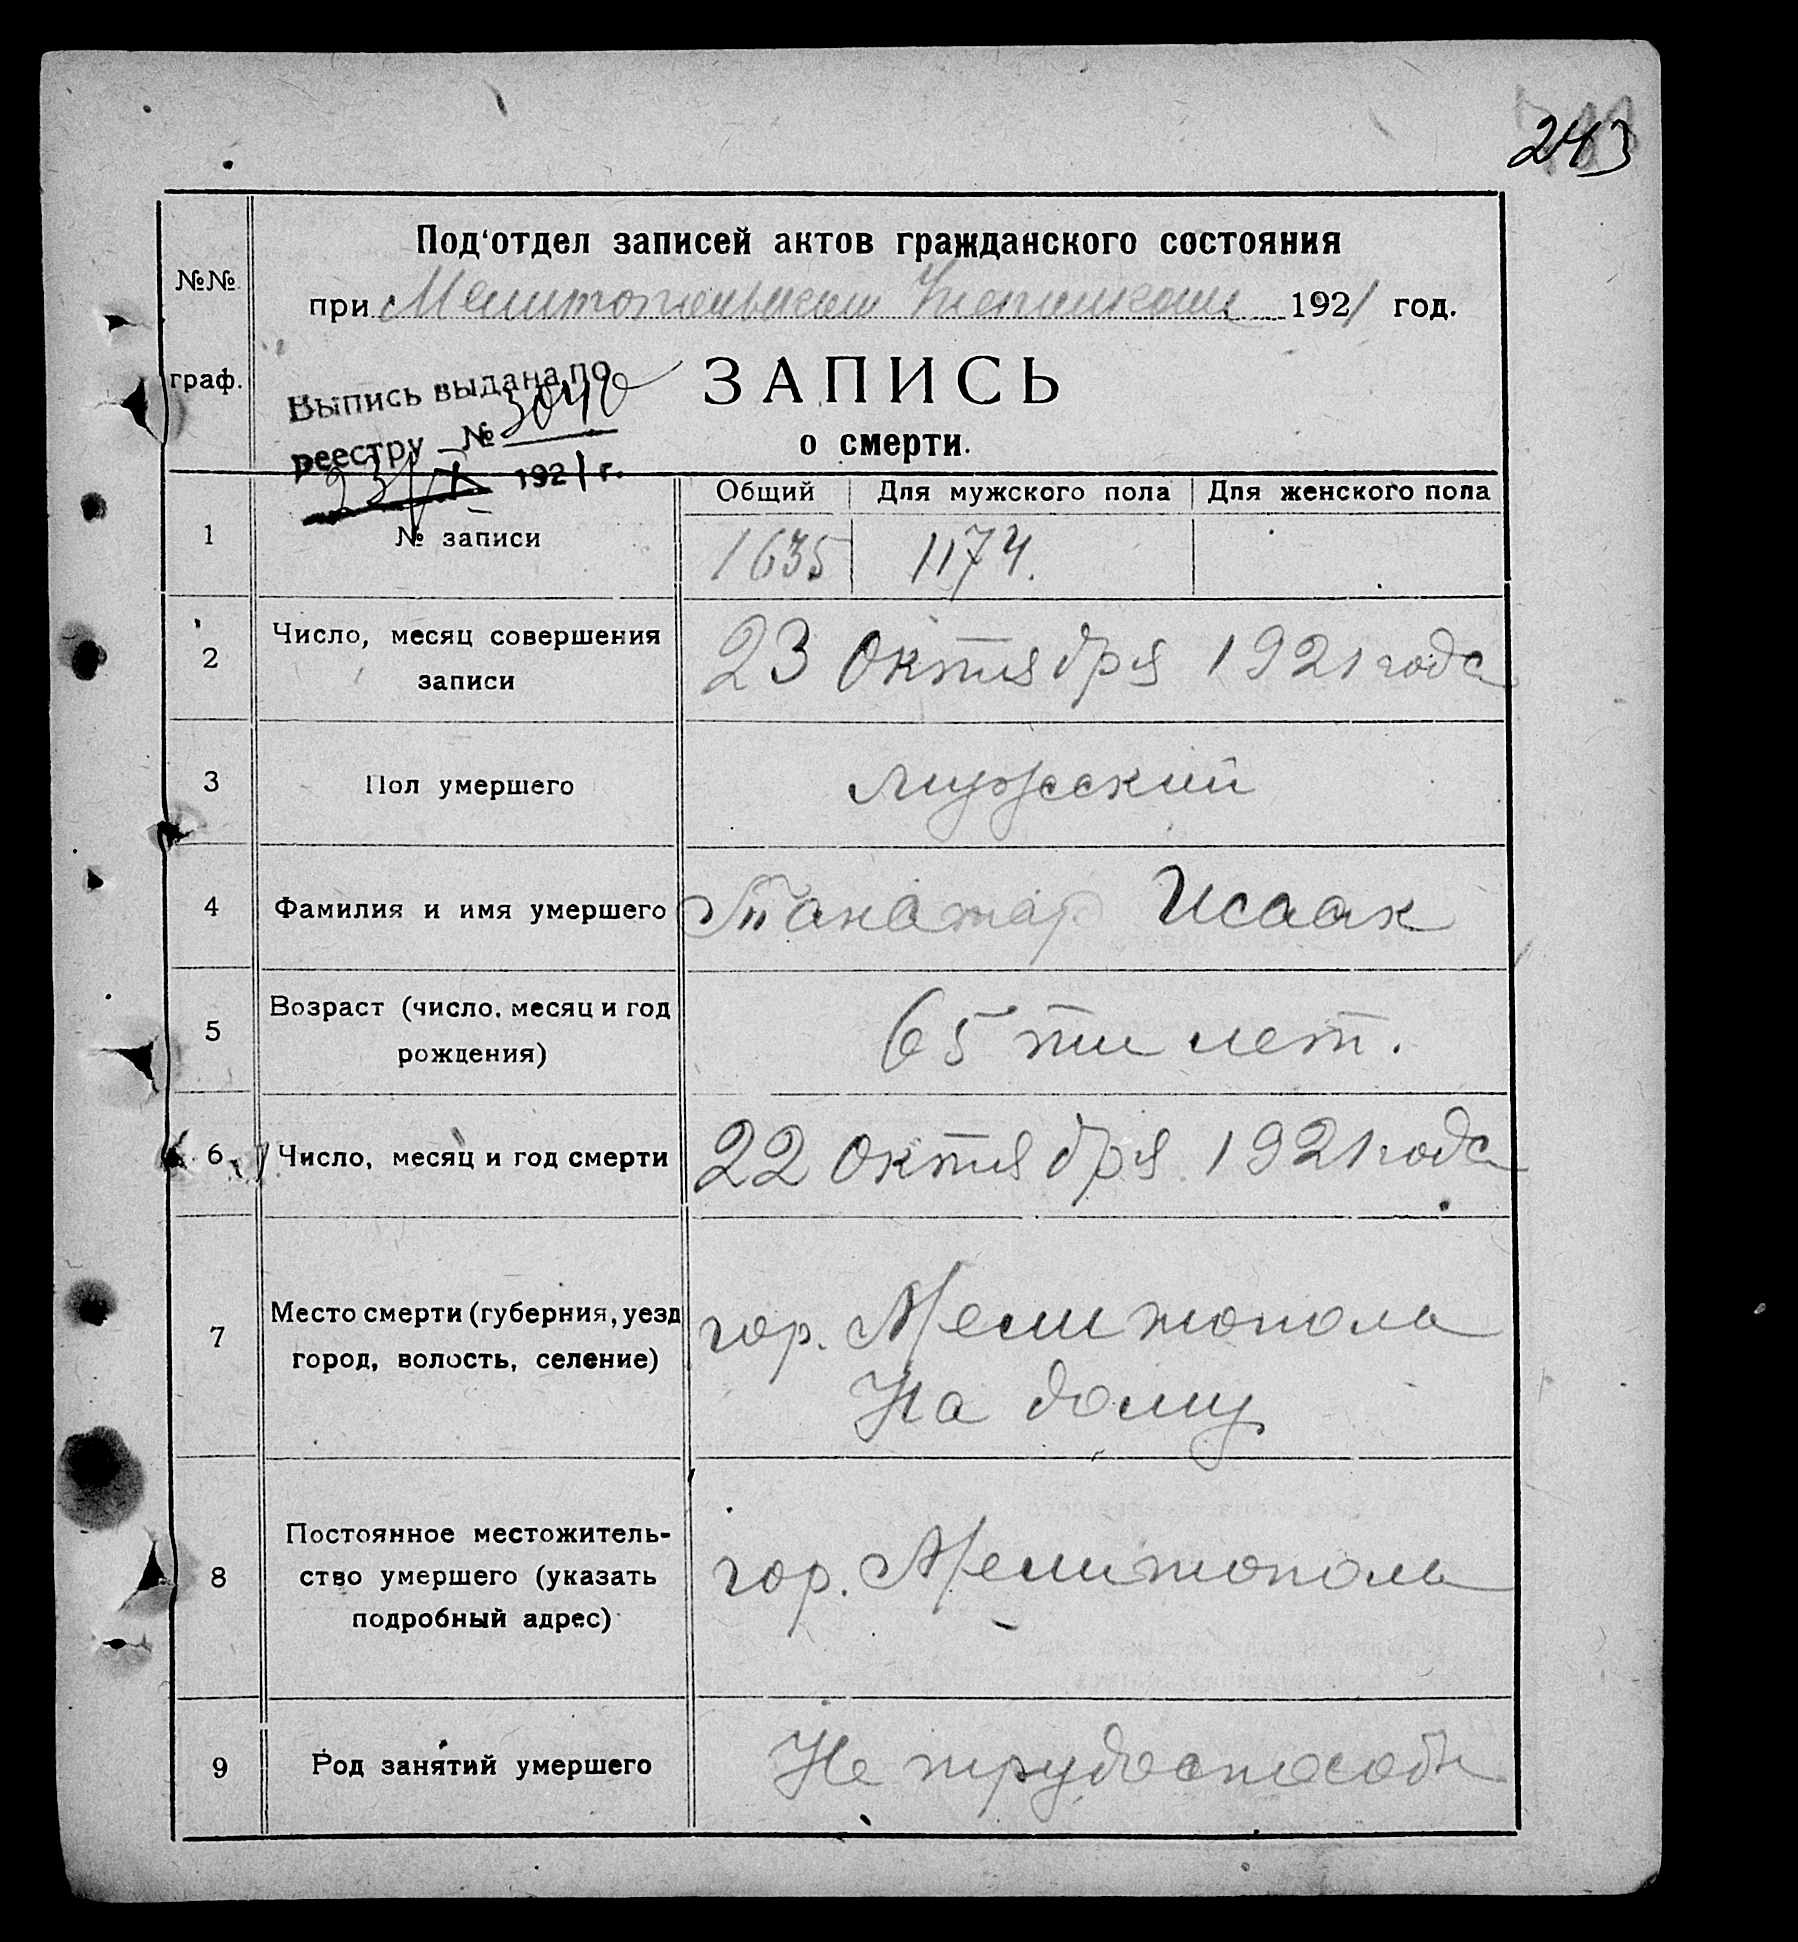 243
Под'отдел записей актов гражданского состояния
№№
при Мелитопольском 1921 год.
граф.
Выпись выдана по
реестру №
1921 г.
ЗАПИСЬ
о смерти.
Общий Для мужского пола Для женского пола
1 № записи 1635 1174.
2 Число, месяц совершения
записи
23 Октября 1921 года
3 Пол умершего мужский
4 Фамилия и имя умершего Танатар Исаак
5 Возраст (число, месяц и год
рождения)
65 ти лет.
6 Число, месяц и год смерти 22 Октября 1921 года
7 Место смерти (губерния, уезд
город, волость, селение)
гор. Мелитополь
На дому
8 Постоянное местожитель-
ство умершего (указать
подробный адрес)
гор. Мелитополь
9 Род занятий умершего Не трудоспособн